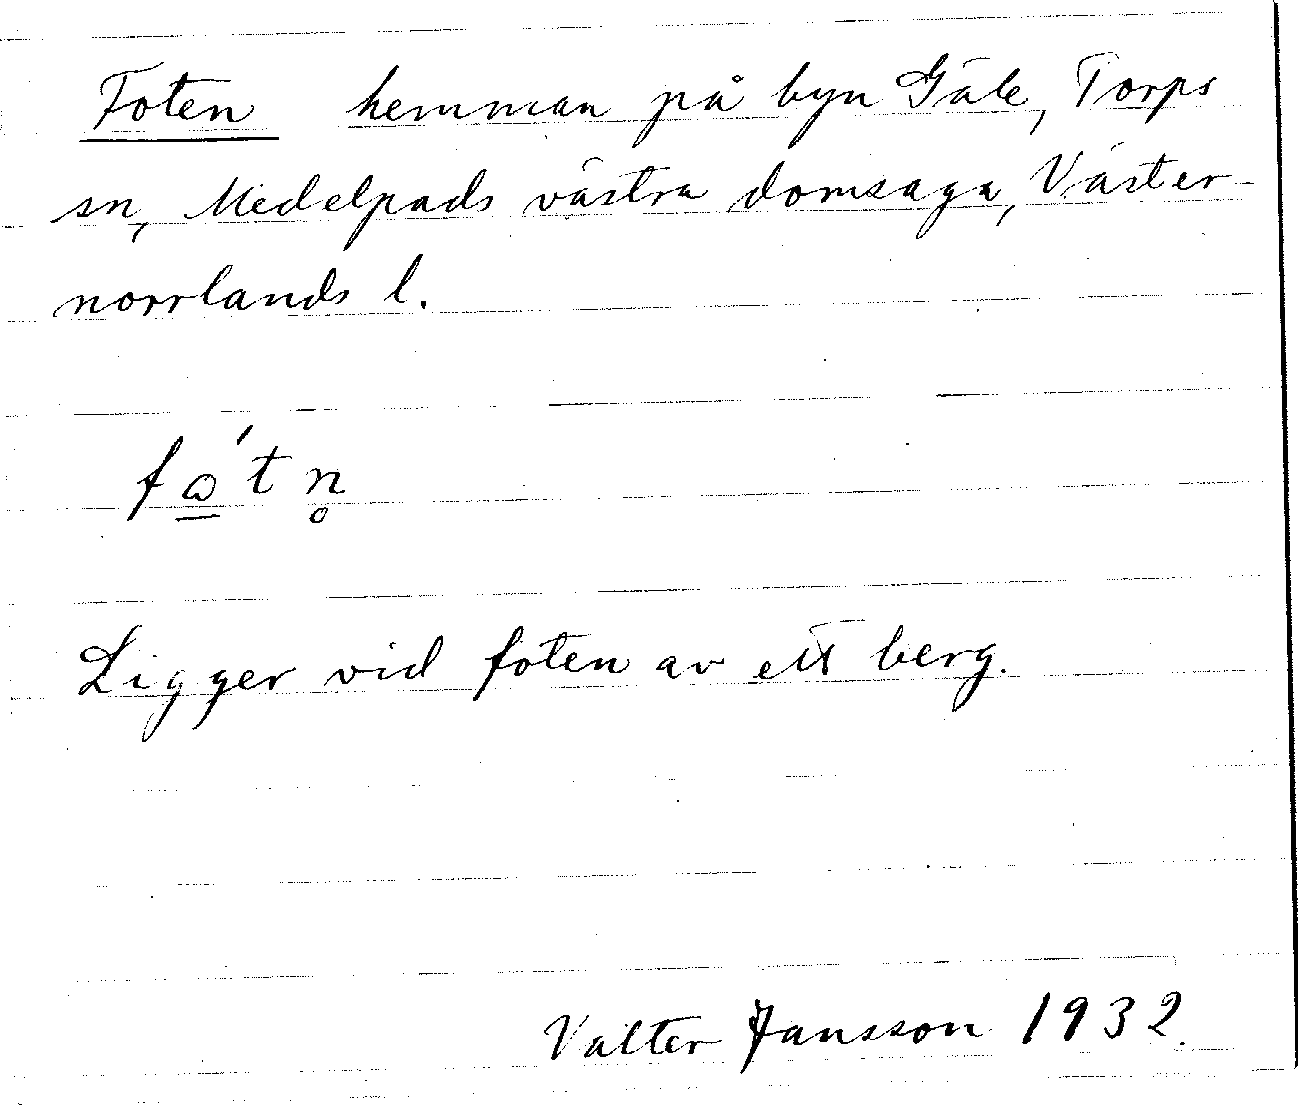 Foten hemman på byn Gåle, Torps
sn, Medelpads västra domsaga, Väster-
norrlands l.
Ligger vid foten av ett berg.
Valter Jansson 1932.